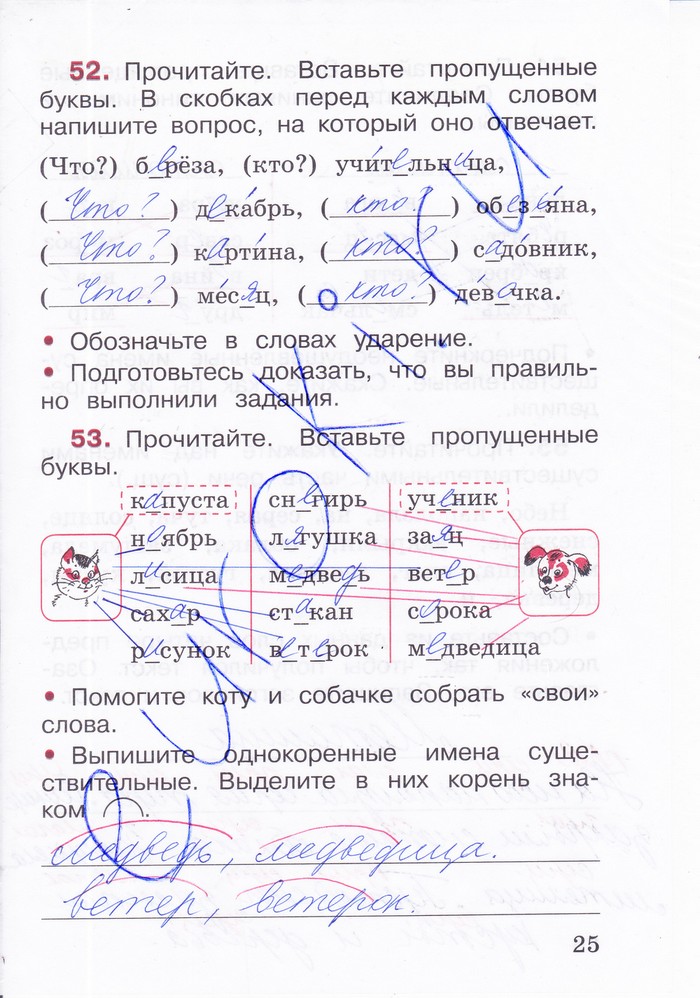 52. Прочитайте. Вставьте пропущенные
буквы. В скобках перед каждым словом
напишите вопрос, на который оно отвечает.
(Что?) берёза, (кто?) учи́тельница,
(Что?) дека́брь, (кто?) обезья́на,
(Что?) карти́на, (кто?) садо́вник,
(Что?) ме́сяц, (кто?) де́вочка.
• Обозначьте в словах ударение.
• Подготовьтесь доказать, что вы правиль-
но выполнили задания.
53. Прочитайте. Вставьте пропущенные
буквы.
капуста снегирь ученик
ноябрь лягушка заяц
лисица медведь ветер
сахар стакан сорока
рисунок ветерок медведица
• Помогите коту и собачке собрать «свои»
слова.
• Выпишите однокоренные имена суще-
ствительные. Выделите в них корень зна-
ком .
медведь, медведица.
ветер, ветерок.
25